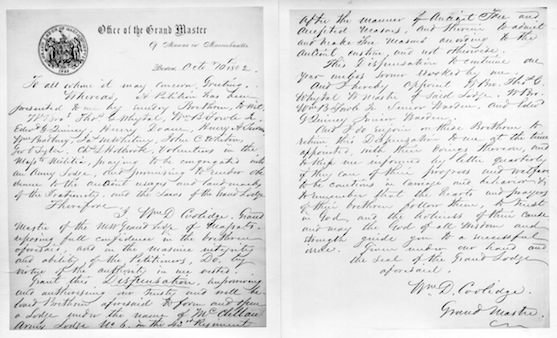 Office of the Grand Master
Of Masons in Massachusetts
Boston Octr 7th 1862.
To all whom it may concern, Greeting.
Whereas, a Petition has been
presented to me by sundry Brethren, to wit,
W. Bros. Thos. G. Whytal, Wm B. Fowle Jr.
Edwd G. Quincy Henry Doane, Henry A.
Jas. Mitchell John C. Whiton
Volunteers in the
Masstts Militia, praying to be congregated into
an Army Lodge, and promising to render obe-
dience to the Ancient usages and landmarks
of the Fraternity, and the Laws of the Grand Lodge
Therefore
I, Wm. D. Coolidge, Grand
Master of the MW Grand Lodge of Massatts.
reposing full confidence in the Brethren
aforesaid, and in the Masonic integrity
and ability of the Petitioners, Do, by
virtue of the authority in me vested
Grant this Dispensation, empowering
and authorizing our trusty and well be-
loved Brethren aforesaid to form and open
a Lodge under the name of McClellan
Army Lodge No 6. in the 43rd Regiment
after the manner of Ancient Free and
Accepted Masons, and therein to admit
and make Free Masons according to the
ancient custom, and not otherwise.
This Dispensation to continue one
year unless sooner revoked by me
And I hereby appoint W Bro. Thos. G.
Whytal Master of said Lodge, W Bro.
Wm B. Fowle Jr Senior Warden, and Edwd
G Quincy Junior Warden.
And I do enjoin on these Brethren to
return this Dispensation to me at the time
appointed, with their doings thereon, and
to keep me informed by letter quarterly
if they can of their progress and welfare
to be cautious in and behavior &
to remember that the hearts and prayers
of their brethren follow them, to trust
in God, and the holiness of their cause
and may the God of all Wisdom and
Strength guide you to successful
ends. Given under our hand and
the seal of the Grand Lodge
aforesaid.
Wm. D. Coolidge.
Grand Master.